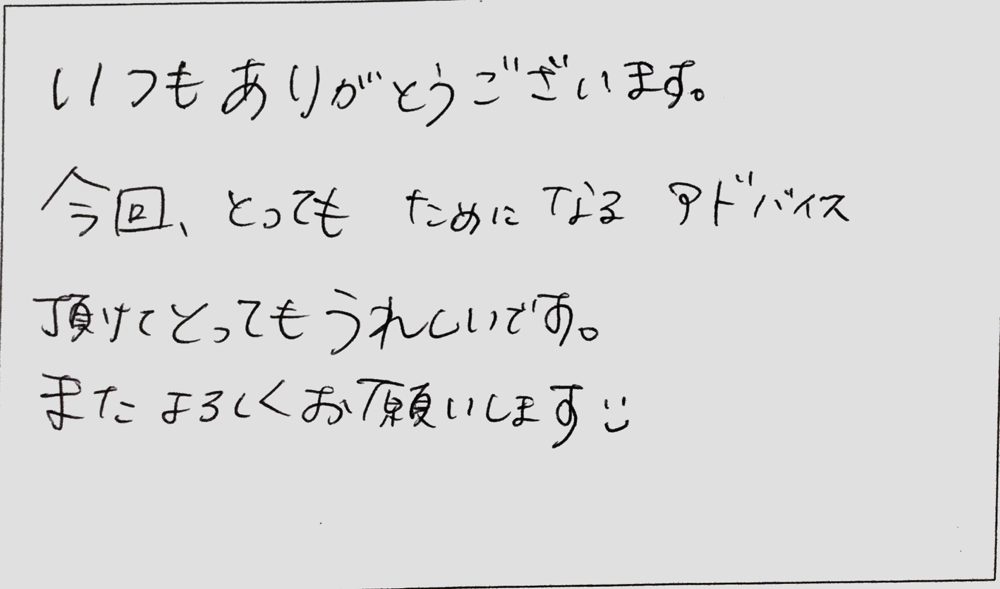 いつもありがとうございます。
今回、とっても ためになる アドバイス
頂けてとってもうれしいです。
またよろしくお願いします